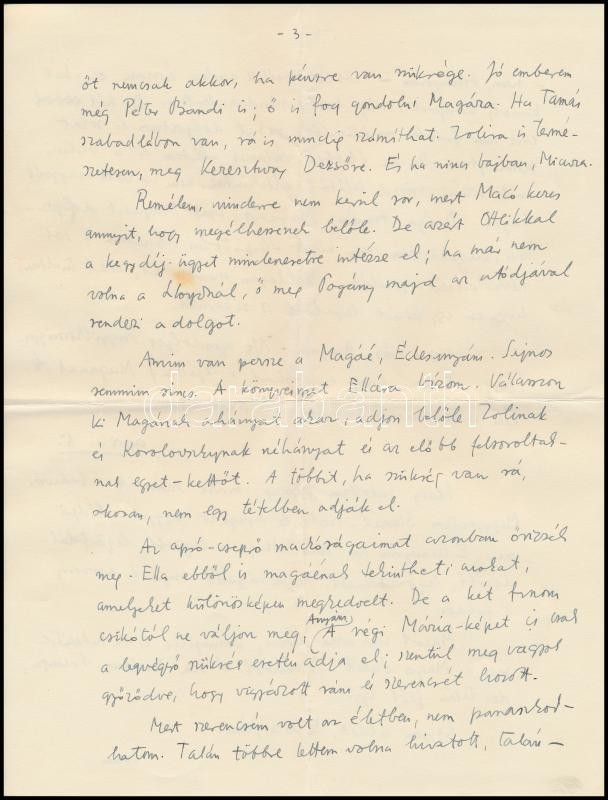 - 3 -
őt nemcsak akkor, ha pénzre van szüksége. Jó emberem
még Péter Bandi is; ő is fog gondolni Magára. Ha Tamás
szabadlábon van, rá is mindig számíthat. Zolira is termé-
szetesen, meg Keresztury Dezsőre. És ha nincs bajban,
Remélem, minderre nem kerül sor, mert Macó keres
annyit, hogy megélhessenek belőle. De azért Ottlikkal
a kegydíj-ügyet mindenesetre intézze el; ha már nem
volna a Lloydnál, ő meg Pogány majd az utódjával
rendezi a dolgot.
Amim van persze a Magáé, Édesanyám. Sajnos
semmim sincs. A könyveimet Ellára bízom. Válasszon
ki Magának ahányat akar, adjon belőle Zolinak
és Korolovszkynak néhányat és az előbb felsoroltak-
nak egyet-kettőt. A többit, ha szükség van rá,
okosan, nem egy tételben adják el.
Az apró-cseprő macóságaimat azonban őrizzék
meg. Ella ebből is magáénak tekintheti azokat,
amelyeket különösképen megkedvelt. De a két finom
csikótól ne váljon meg, Anyám. A régi Mária-képet is csak
a legvégső szükség esetén adja el; szentül meg vagyok
győződve, hogy vigyázott rám és szerencsét hozott.
Mert szerencsém volt az életben, nem panaszkod-
hatom. Talán többre lettem volna hivatott, talán—
darabanth